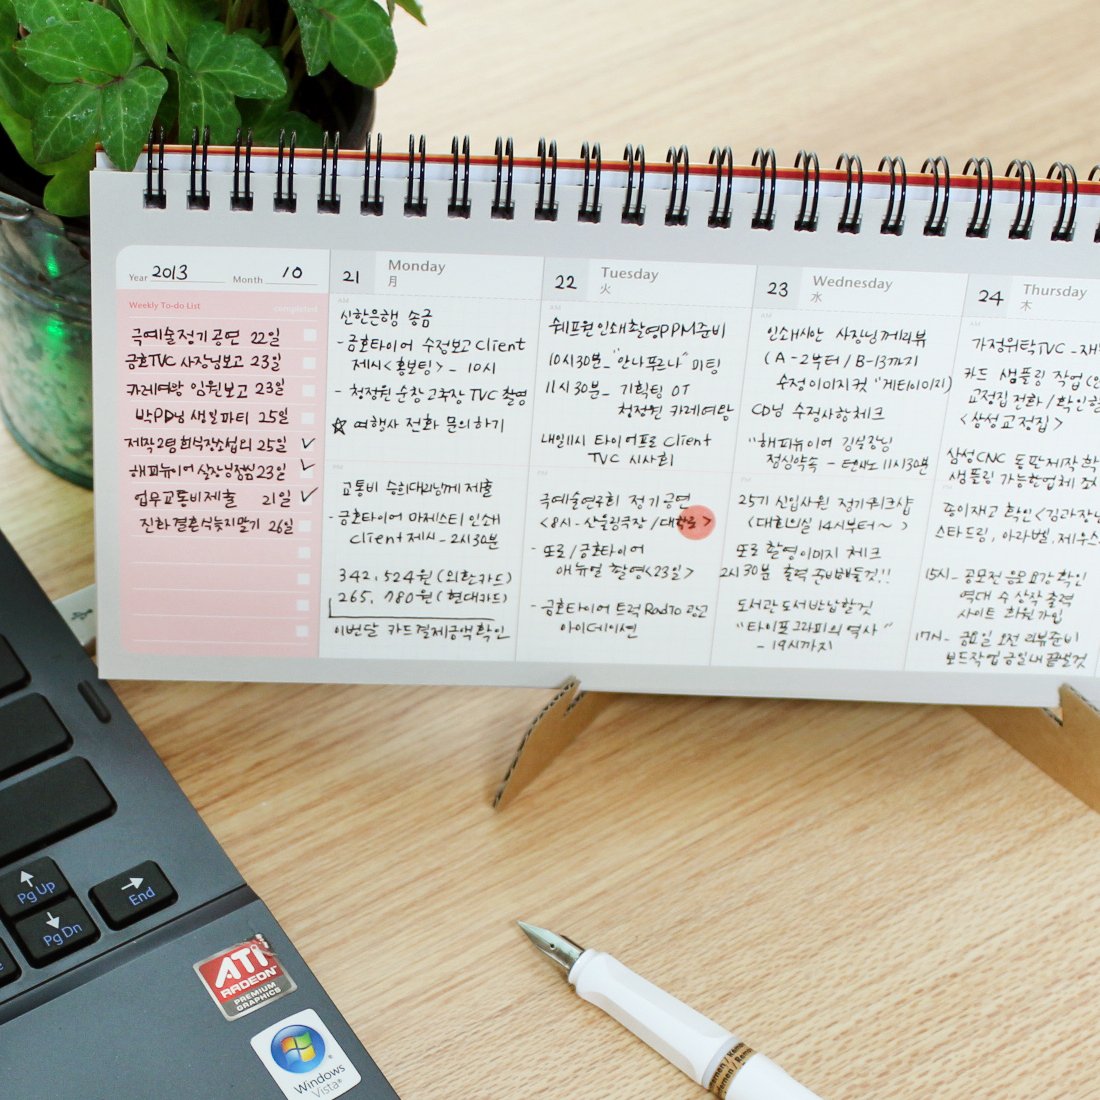 Year 2013 Month 10
Weekly To-do List completed
극예술정기공연 22일
금호TVC 사장님보고 23일
카레여왕 임원보고 23일
박PD님 생일파티 25일
제작2팀 회식장소섭외 25일
해피뉴이어 실장님점심 23일
업무교통비제출 21일
진화결혼식늦지말기 26일
21 Monday 月
AM
신한은행 송금
- 금호타이어 수정보고 Client
제시<홍보팅> - 10시
- 청정원 순창고추장 TVC 촬영
☆ 여행사 전화 문의하기
PM
교통비 승희대리님께 제출
- 금호타이어 마제스티 인쇄
Client 제시 - 2시30분
342,524원 (외환카드)
265,780원 (현대카드)
이번달 카드결제금액확인
22 Tuesday 火
AM
쉐프원인쇄촬영PPM준비
10시30분_ "안나푸르나" 미팅
11시30분_ 기획팅 OT
청정원 카레여왕
내일11시 타이어프로 Client
TVC 시사회
PM
극예술연구회 정기공연
<8시 - 산울림극장 / 대학로>
- 또로 / 금호타이어
애뉴얼 촬영<23일>
- 금호타이어 트럭 Radio 광고
아이데이션
23 Wednesday 水
AM
인쇄시안 사장님께리뷰
(A-2부터 / B-13까지
수정이미지컷 "게티이미지)
CD님 수정사항체크
"해피뉴이어 김실장님
점심약속 - 11시30분
PM
25기 신입사원 정기워크샵
(대회의실 14시부터~)
또로 촬영이미지 체크
2시30분 출력 준비해둘것!!
도서관 도서반납할것
"타이포그라피의 역사"
- 19시까지
24 Thursday 木
AM
가정위탁TVC -
카드 샘플링 작업
교정집 전화 / 확인할
<삼성교정집>
삼성CNC 동판제작
샘플링 가능한업체 조사
PM
종이재고 확인<김과장님
스타드림, 아라벨, 제우스
15시_ 공모전 응모요강 확인
역대 수상작 출력
사이트 회원가입
17시_ 금요일 오전 리뷰준비
보드작업 금일내 끝낼것
Pg Up
Pg Dn
End
ATI
RADEON
PREMIUM
GRAPHICS
Windows
Vista